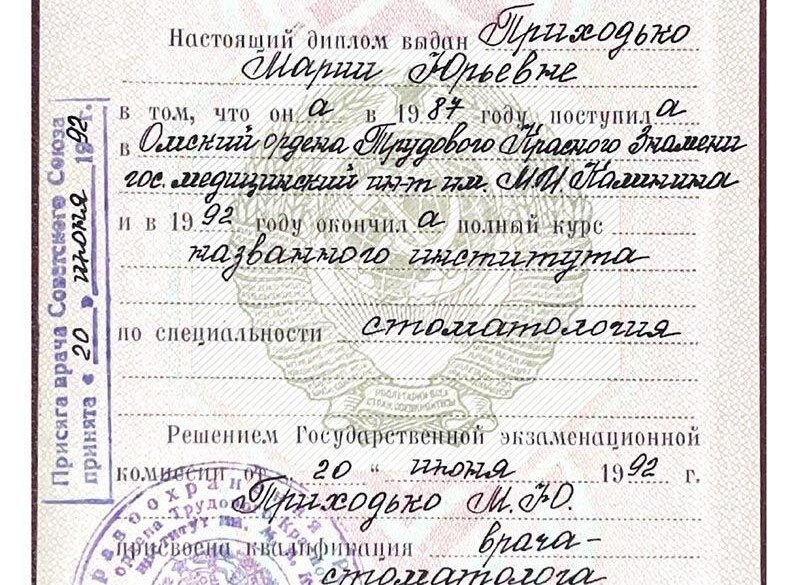 Настоящий диплом выдан Приходько
Марии Юрьевне
в том, что он а в 1987 году поступил а
в Омский ордена Трудового Красного Знамени
гос. медицинский ин-т им. М.И. Калинина
и в 1992 году окончил а полный курс
названного института
по специальности стоматология
Решением Государственной экзаменационной
комиссии от " 20 " июня 1992 г.
Приходько М. Ю.
присвоена квалификация врача-
стоматолога
Присяга врача Советского Союза
принята « 20 » июня 1992 г.
ПРОЛЕТАРИИ ВСЕХ
СТРАН, СОЕДИНЯЙТЕСЬ!